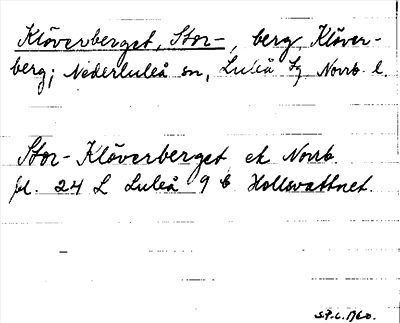 Klöverberget, Stor-, berg, Klöver-
berg; Nederluleå sn, Luleå tg Norrb. l.
Stor-Klöverberget ek Norrb.
bl. 24 L Luleå 9 b Hollsvattnet.
S.P.C. 1960.